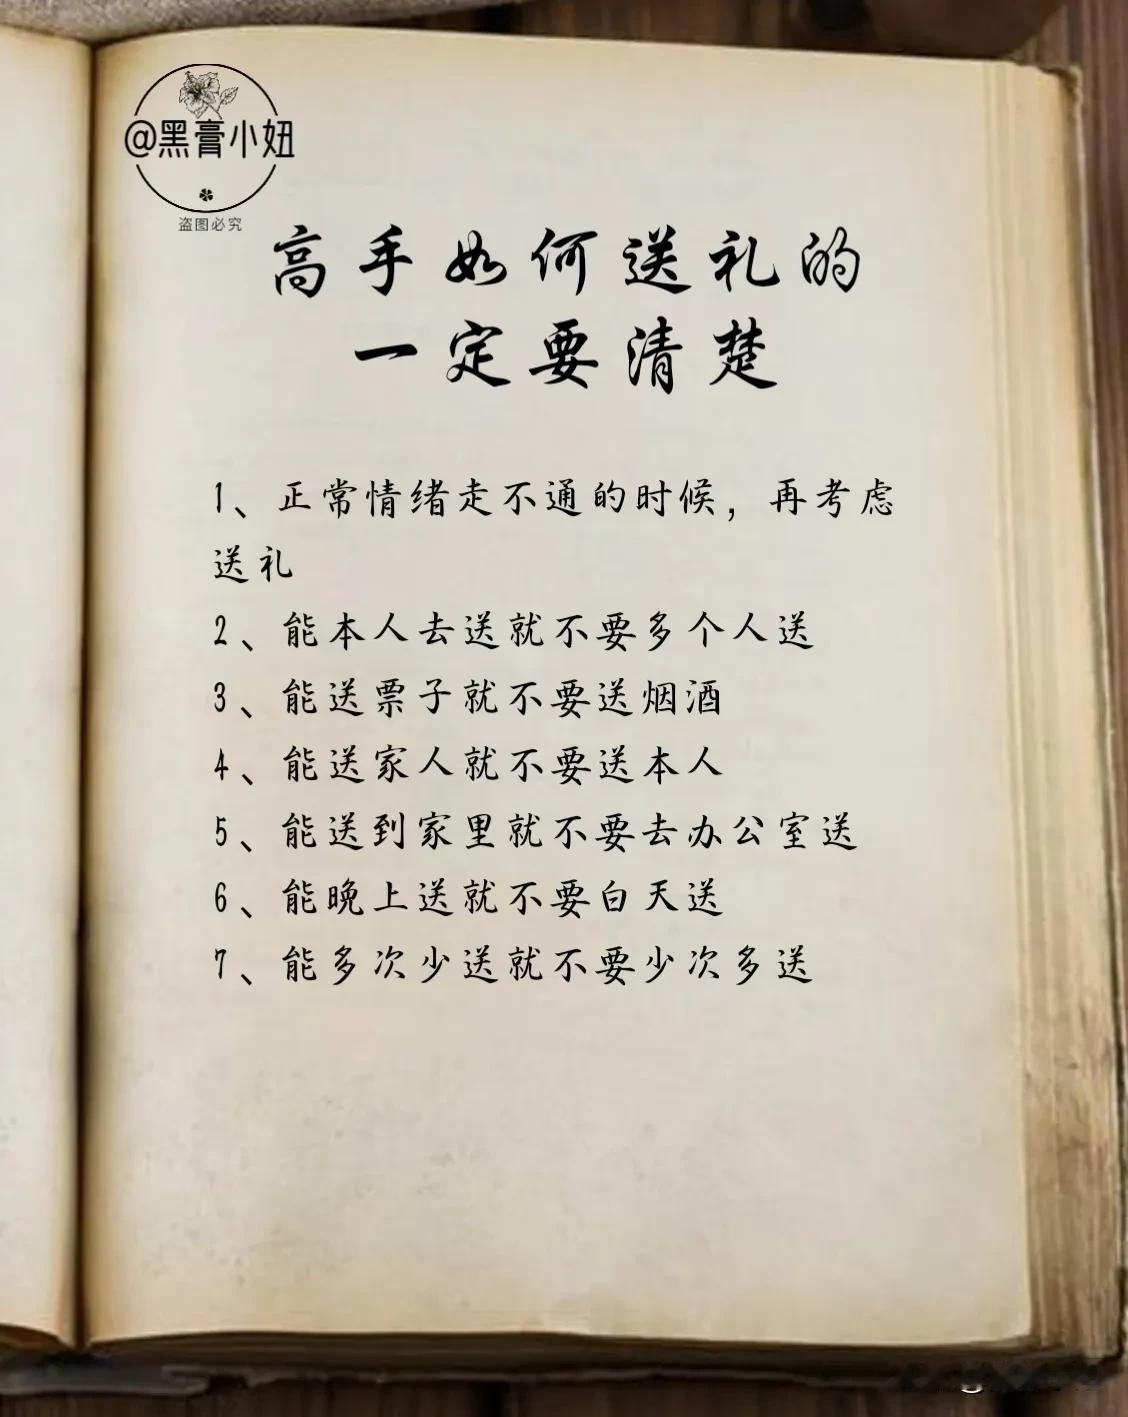 @黑膏小妞
盗图必究
高手如何送礼的
一定要清楚
1、正常情绪走不通的时候，再考虑
送礼
2、能本人去送就不要多个人送
3、能送票子就不要送烟酒
4、能送家人就不要送本人
5、能送到家里就不要去办公室送
6、能晚上送就不要白天送
7、能多次少送就不要少次多送